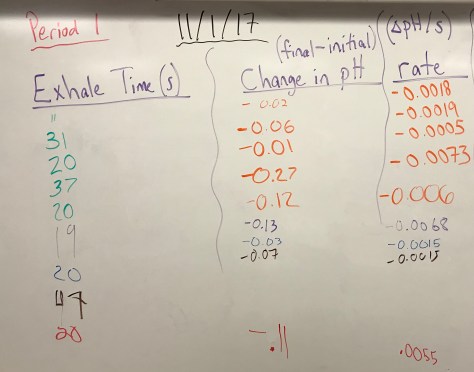 Period 1
11/1/17
Exhale Time (s)
11
31
20
37
20
19
20
47
20
(final-initial)
Change in pH
- 0.02
-0.06
-0.01
-0.27
-0.12
-0.13
-0.03
-0.07
-.11
(ΔpH/s)
rate
-0.0018
-0.0019
-0.0005
-0.0073
-0.006
-0.0068
-0.0015
-0.0015
.0055